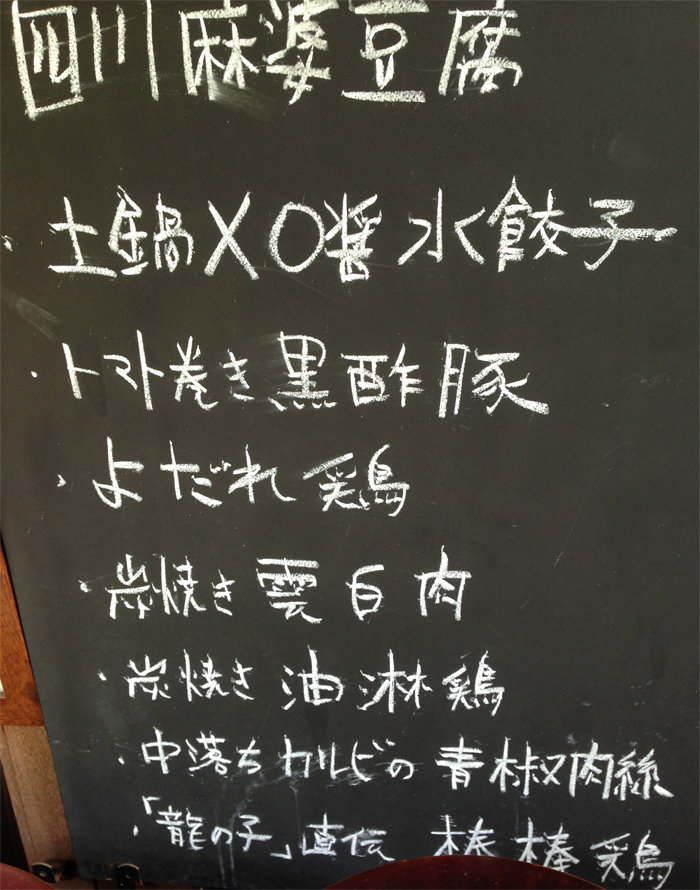 四川麻婆豆腐
・土鍋XO醤水餃子
・トマト巻き黒酢豚
・よだれ鶏
・炭焼き雲白肉
・炭焼き油淋鶏
・中落ちカルビの青椒肉絲
・「龍の子」直伝 棒棒鶏